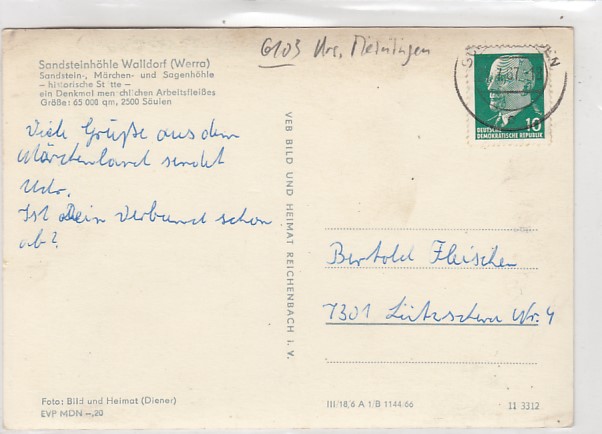 6103 Krs. Meiningen
Sandsteinhöhle Walldorf (Werra)
Sandstein-, Märchen- und Sagenhöhle
– historische St tte –
ein Denkmal men chlichen Arbeitsfleißes
Größe: 65 000 qm, 2500 Säulen
Viele Grüße aus dem
Märchenland sendet
Udo.
Ist Dein Verband schon
ab?
VEB BILD UND HEIMAT REICHENBACH i. V.
10
DEUTSCHE
DEMOKRATISCHE REPUBLIK
Bertold Fleischer
7301 Lützschera Nr. 4
Foto: Bild und Heimat (Diener)
EVP MDN –,20
III/18/6 A 1/B 1144/66
11 3312